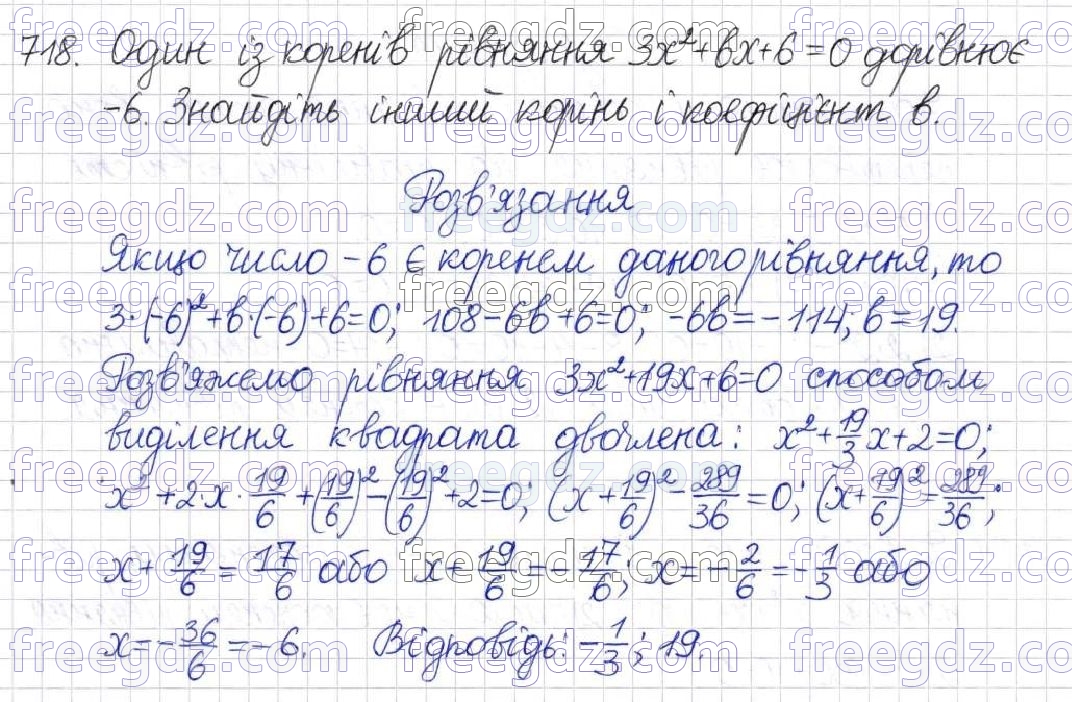 718. Один із коренів рівняння 3x²+вx+6=0 дорівнює
-6. Знайдіть інший корінь і коефіцієнт в.
Розв'язання
Якщо число -6 є коренем даного рівняння, то
3·(-6)²+в·(-6)+6=0; 108-6в+6=0; -6в=-114; в=19.
Розв'яжемо рівняння 3x²+19x+6=0 способом
виділення квадрата двочлена: x²+19/3x+2=0;
x²+2·x·19/6+(19/6)²-(19/6)²+2=0; (x+19/6)²-289/36=0; (x+19/6)²=289/36;
x+19/6=17/6 або x+19/6=-17/6; x=-2/6=-1/3 або
x=-36/6=-6. Відповідь: -1/3; 19.
freegdz.com